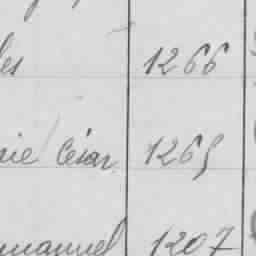 les 1266
rie César 1265
manuel 1207